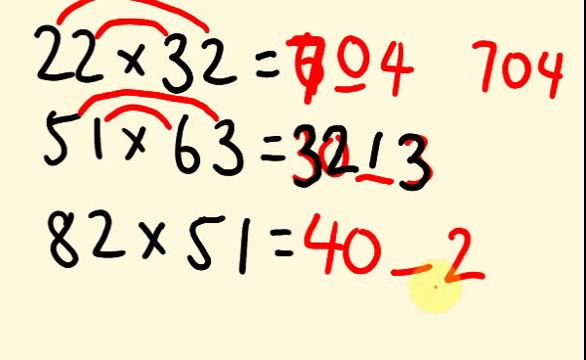 22 × 32 = 704 704
51 × 63 = 3213
82 × 51 = 40_2